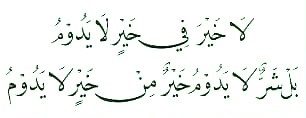 لَا خَيْرَ فِي خَيْرٍ لَا يَدُوْمُ
بَلْ شَرٌّ لَا يَدُوْمُ خَيْرٌ مِنْ خَيْرٍ لَا يَدُوْمُ